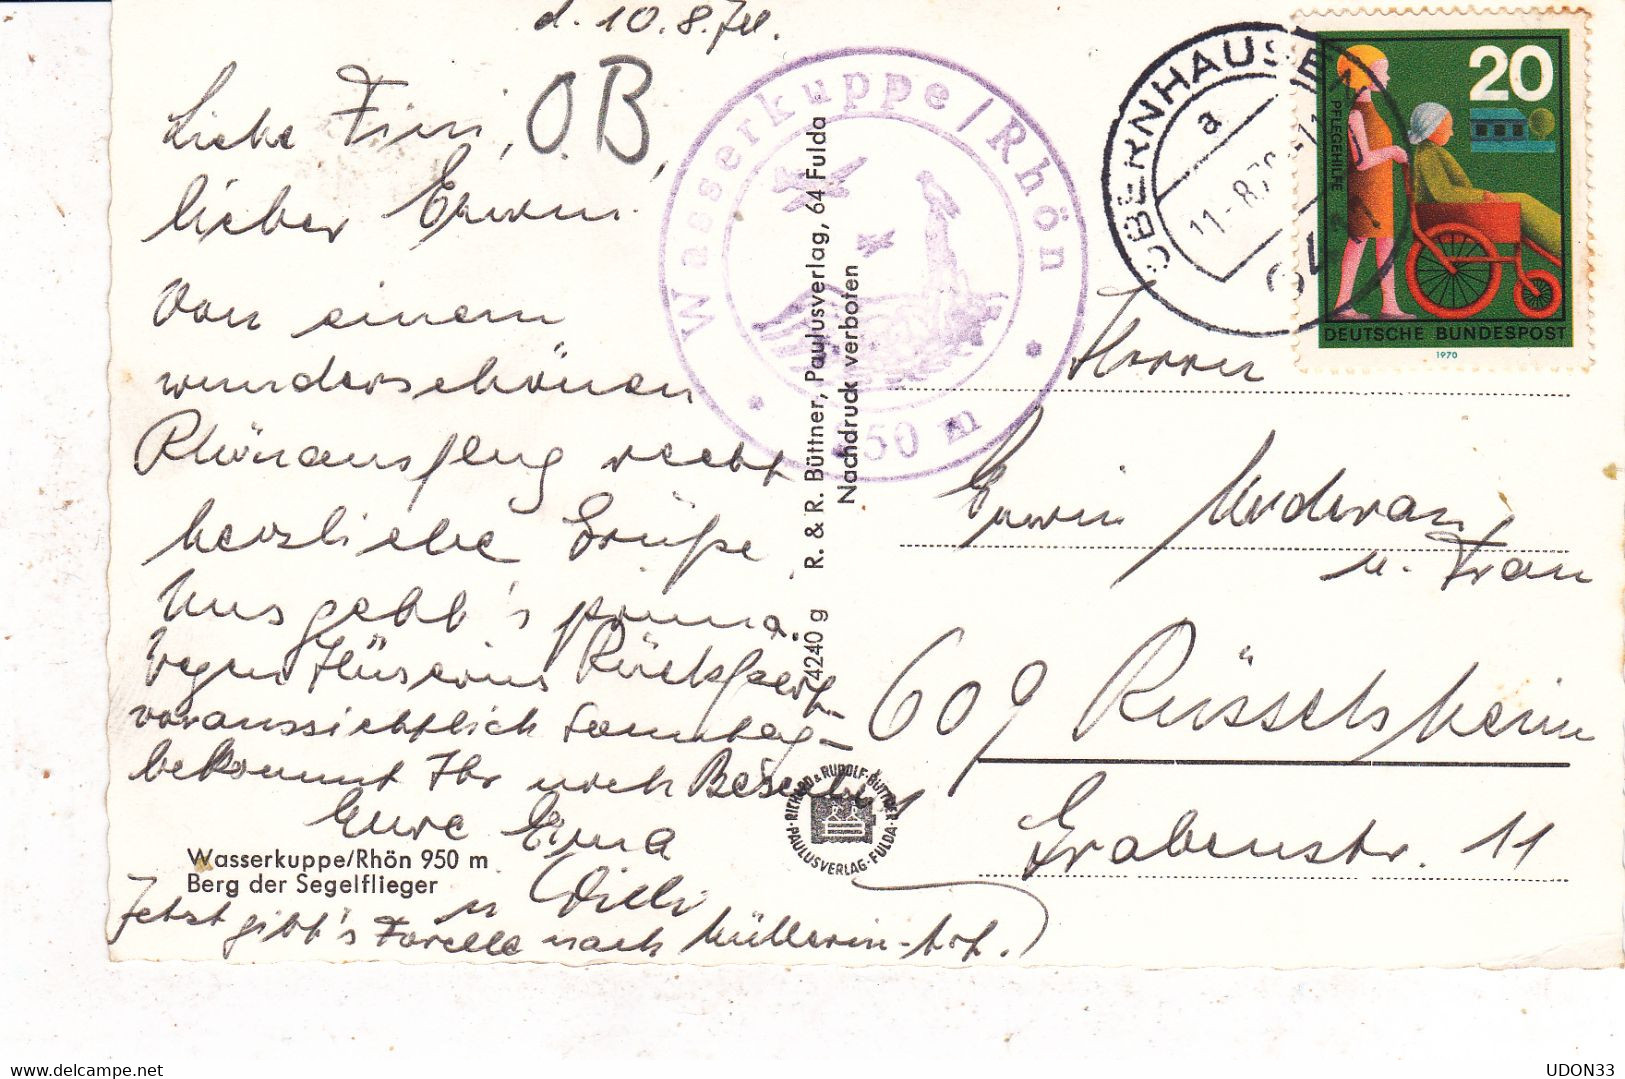 d. 10.8.70.
Liebe Fini, O.B,
lieber Erwin.
Von einem
wunderschönen
Rhönausflug recht
herzliche Grüße
Uns geht's prima.
Rückfahrt
voraussichtlich Sonntag-
bekommt Ihr noch Bescheid
Eure Erna
u Willi
Jetzt gibt's Forelle nach Müllerin-Art.
Wasserkuppe/Rhön 950 m
Berg der Segelflieger
Wasserkuppe/Rhön
950 m
R. & R. Büttner, Paulusverlag, 64 Fulda
Nachdruck verboten
4240 g
RICHARD & RUDOLF BÜTTNER
PAULUSVERLAG · FULDA
OBERNHAUSEN
a
11.-8.70
20
PFLEGEHILFE
DEUTSCHE BUNDESPOST
1970
Herrn
Erwin
u. Frau
609 Rüsselsheim
Grabenstr. 11
UDON33
delcampe.net